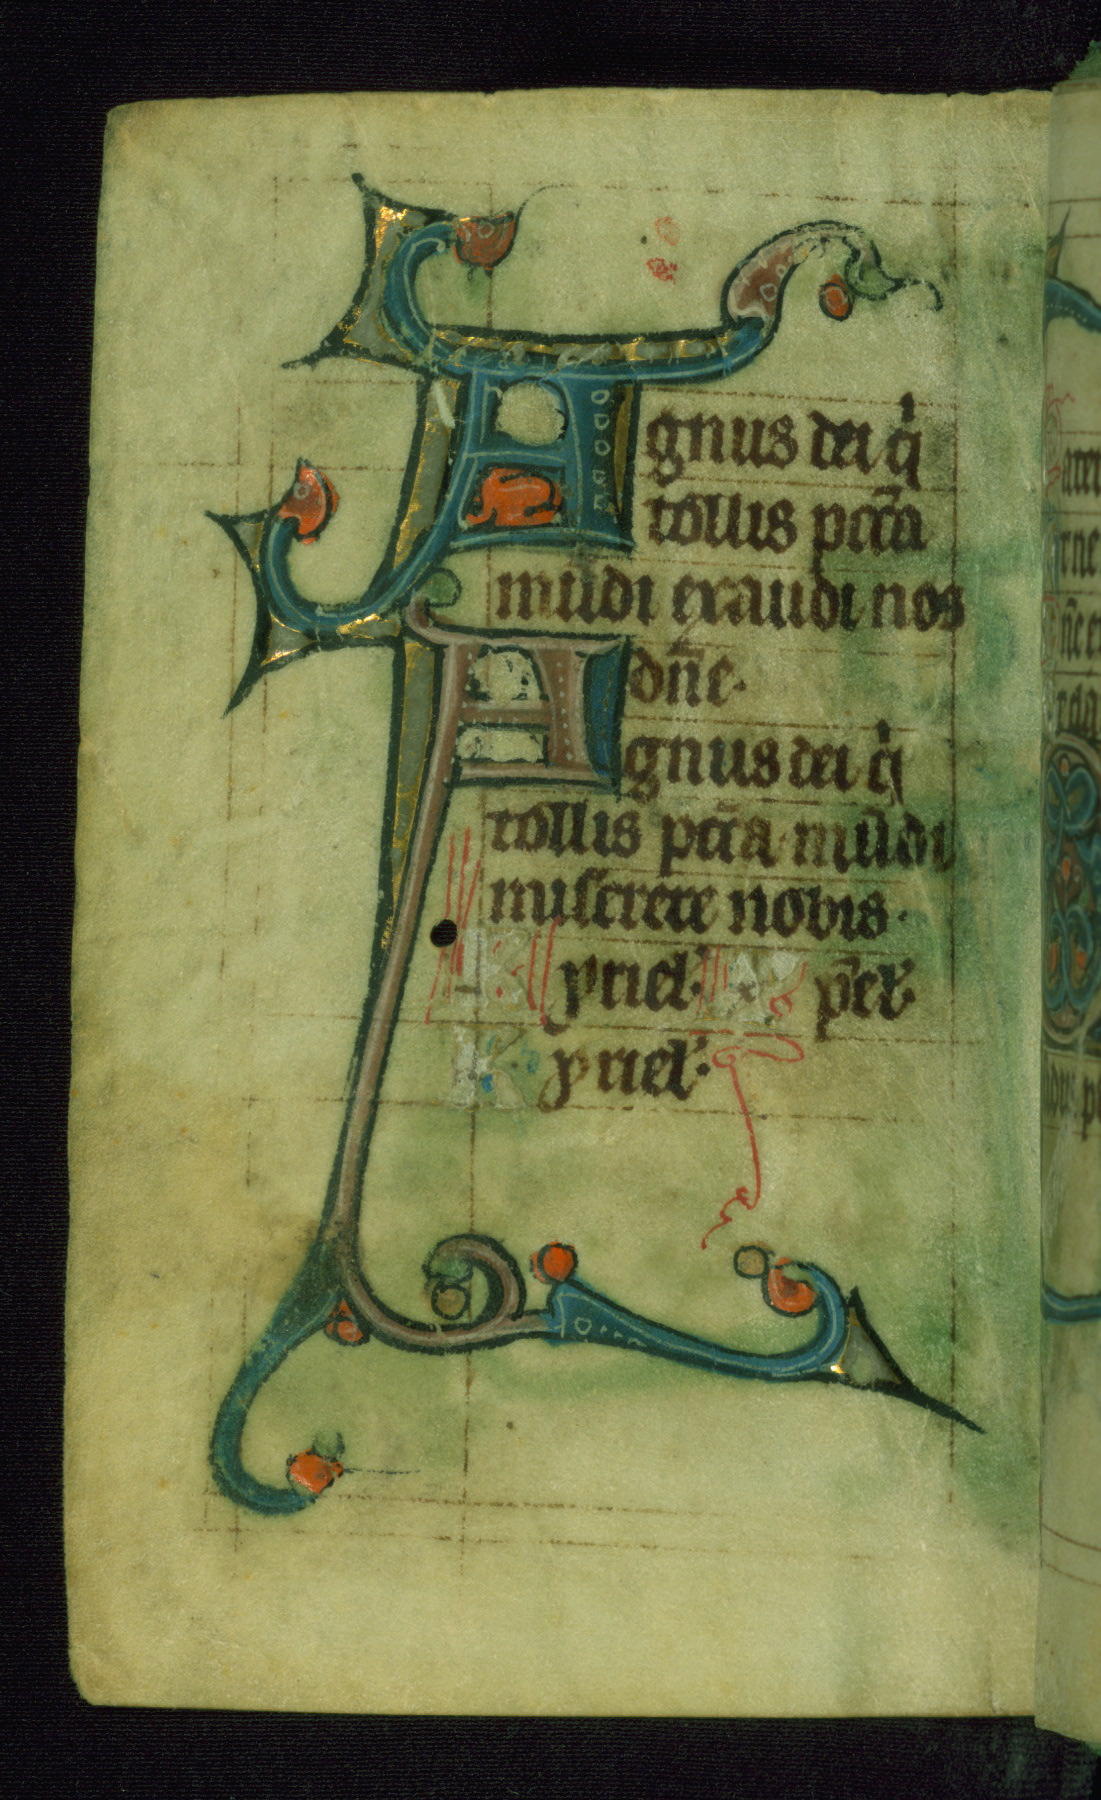 Agnus dei q̇
tollis pcc̄a
mūdi exaudi nos
dn̄e.
Agnus dei q̇
tollis pcc̄a mūdi
miserere nobis.
Kyriel'. X p̄el'.
Kyriel'.